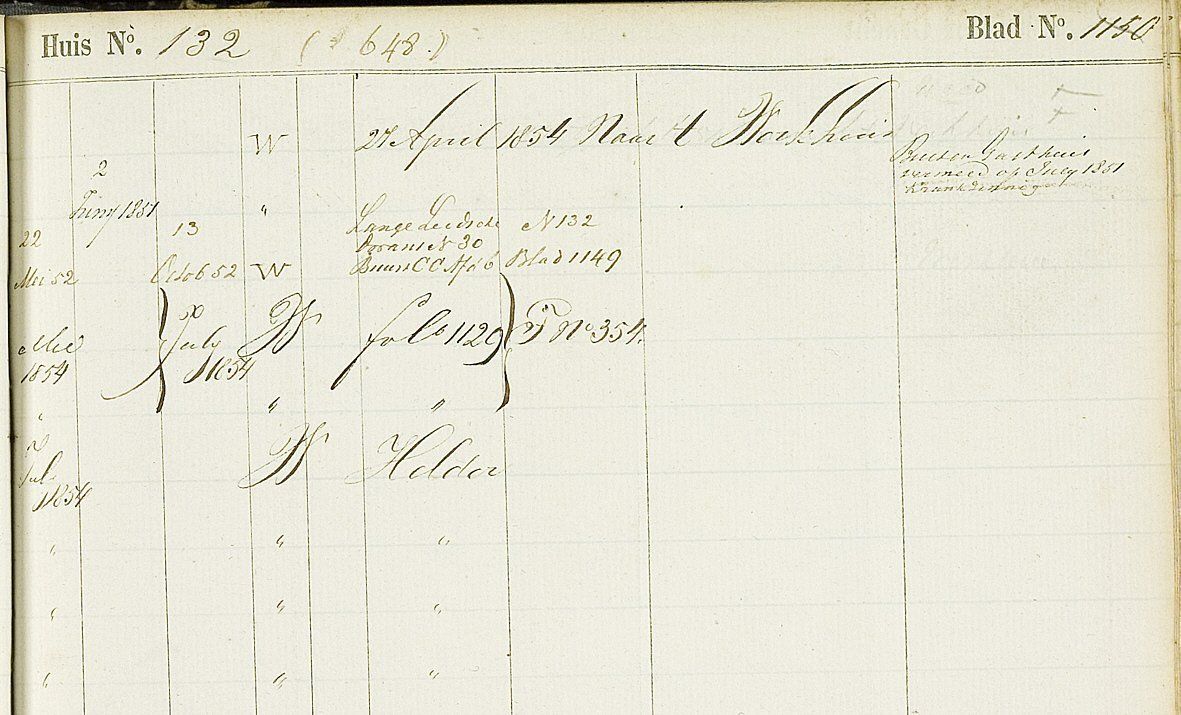 Huis No. 132 ( 648.) Blad No. 1150
W 27 April 1854 Naar 't Werkhuis
Buiten Gasthuis
vermeld op July 1851
krankzinnig
2
Juny 1851 "
22 13 Lange Leidsche N 132
Dwars N 30
Mei 52 Octob 52 W Buurt CC No 6 Blad 1149
Mei July W folo 1129 T No 354.
1854 1854
" " "
Jul W Helder
1854
" " "
" " "
" " "